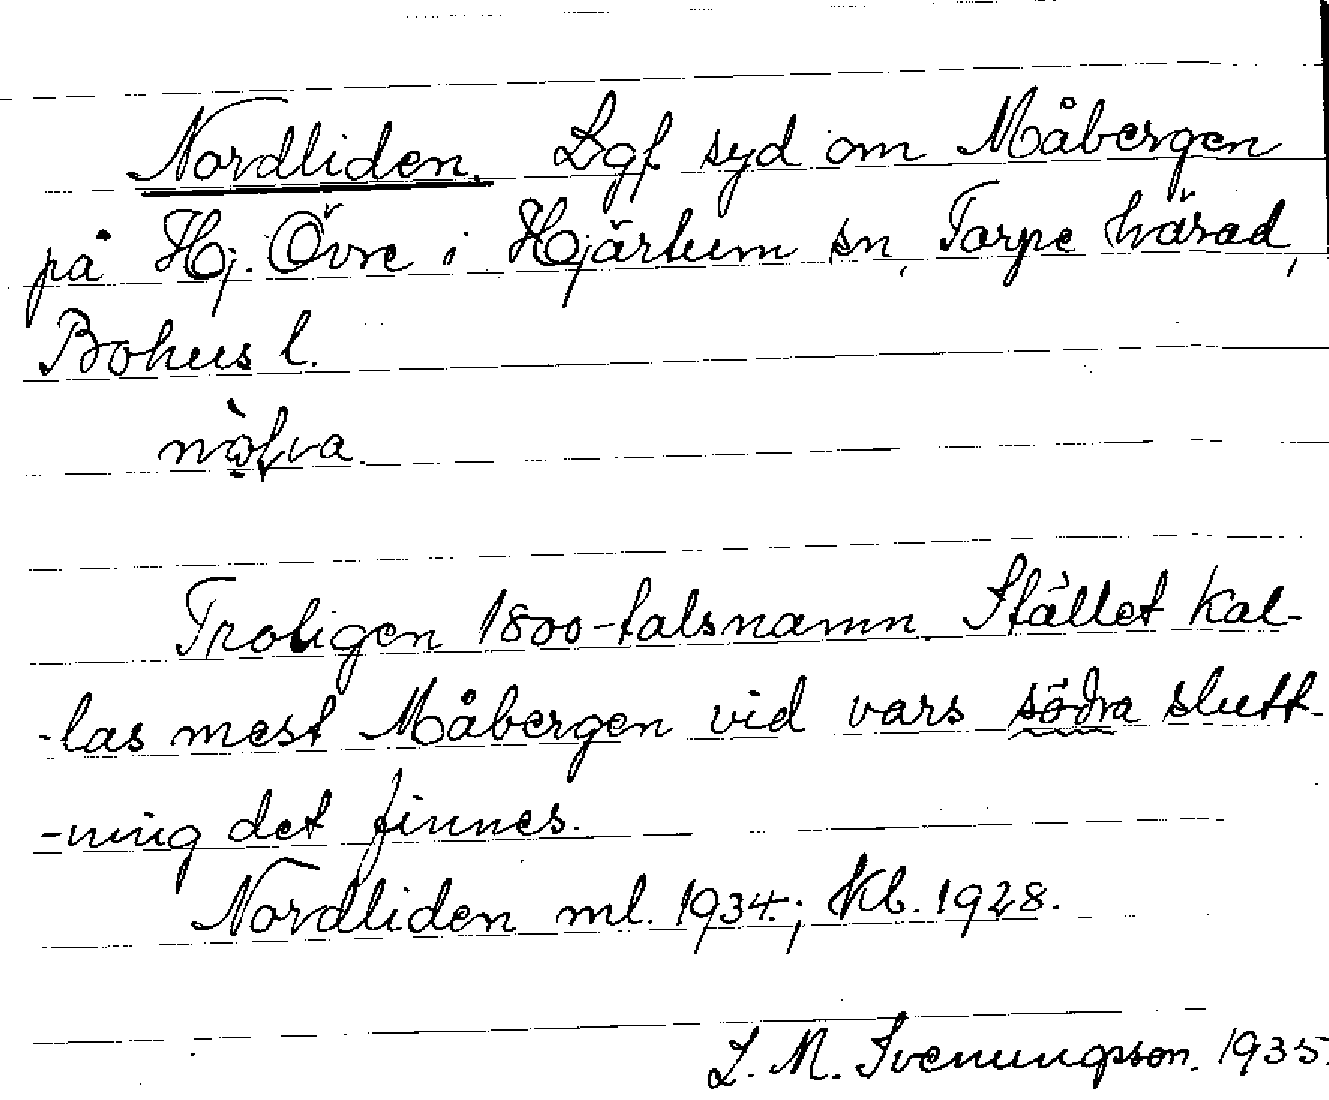 Nordliden. Lgf. syd om Måbergen
på Hj. Övre i Hjärtum sn, Torpe härad,
Bohus l.
Troligen 1800-talsnamn. Stället kal-
-las mest Måbergen vid vars södra slutt-
-ning det finnes.
Nordliden ml. 1934.; Kb. 1928.
L. M. Svenungsson. 1935.